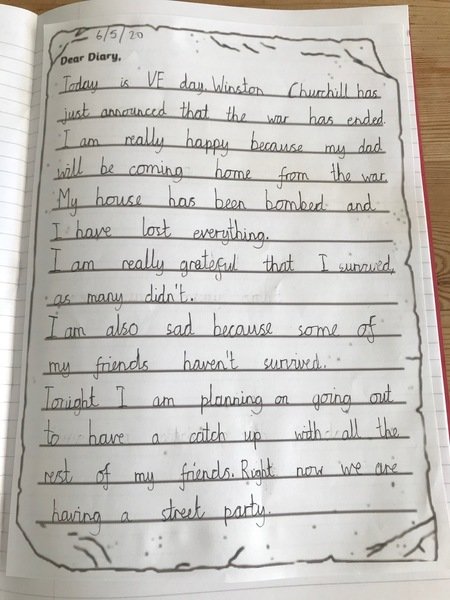 6/5/20
Dear Diary,
Today is VE day. Winston Churchill has
just announced that the war has ended.
I am really happy because my dad
will be coming home from the war.
My house has been bombed and
I have lost everything.
I am really grateful that I survived,
as many didn't.
I am also sad because some of
my friends haven't survived.
Tonight I am planning on going out
to have a catch up with all the
rest of my friends. Right now we are
having a street party.